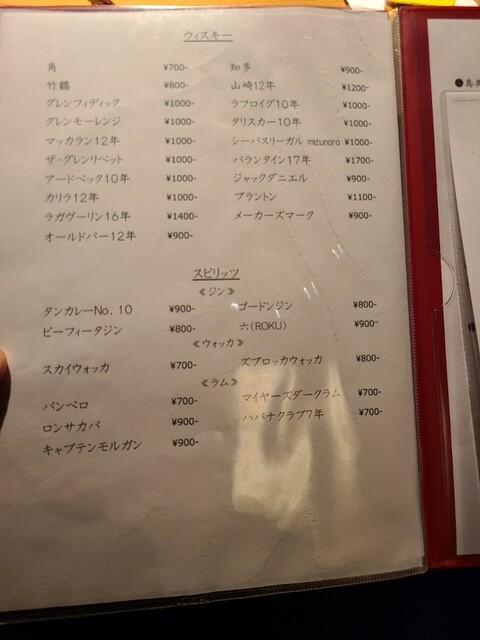 ウィスキー
角 ¥700- 知多 ¥900-
竹鶴 ¥800- 山崎12年 ¥1200-
グレンフィディック ¥1000- ラフロイグ10年 ¥1000-
グレンモーレンジ ¥1000- タリスカー10年 ¥1000-
マッカラン12年 ¥1000- シーバスリーガル mizunara ¥1000-
ザ・グレンリベット ¥1000- バランタイン17年 ¥1700-
アードベック10年 ¥1000- ジャックダニエル ¥900-
カリラ12年 ¥1000- ブラントン ¥1100-
ラガヴーリン16年 ¥1400- メーカーズマーク ¥900-
オールドパー12年 ¥900-
スピリッツ
《ジン》
タンカレーNo. 10 ¥900- ゴードンジン ¥800-
ビーフィータジン ¥800- 六(ROKU) ¥900-
《ウォッカ》
スカイウォッカ ¥700- ズブロッカウォッカ ¥800-
《ラム》
パンペロ ¥700- マイヤーズダークラム ¥700-
ロンサカパ ¥900- ハバナクラブ7年 ¥700-
キャプテンモルガン ¥900-